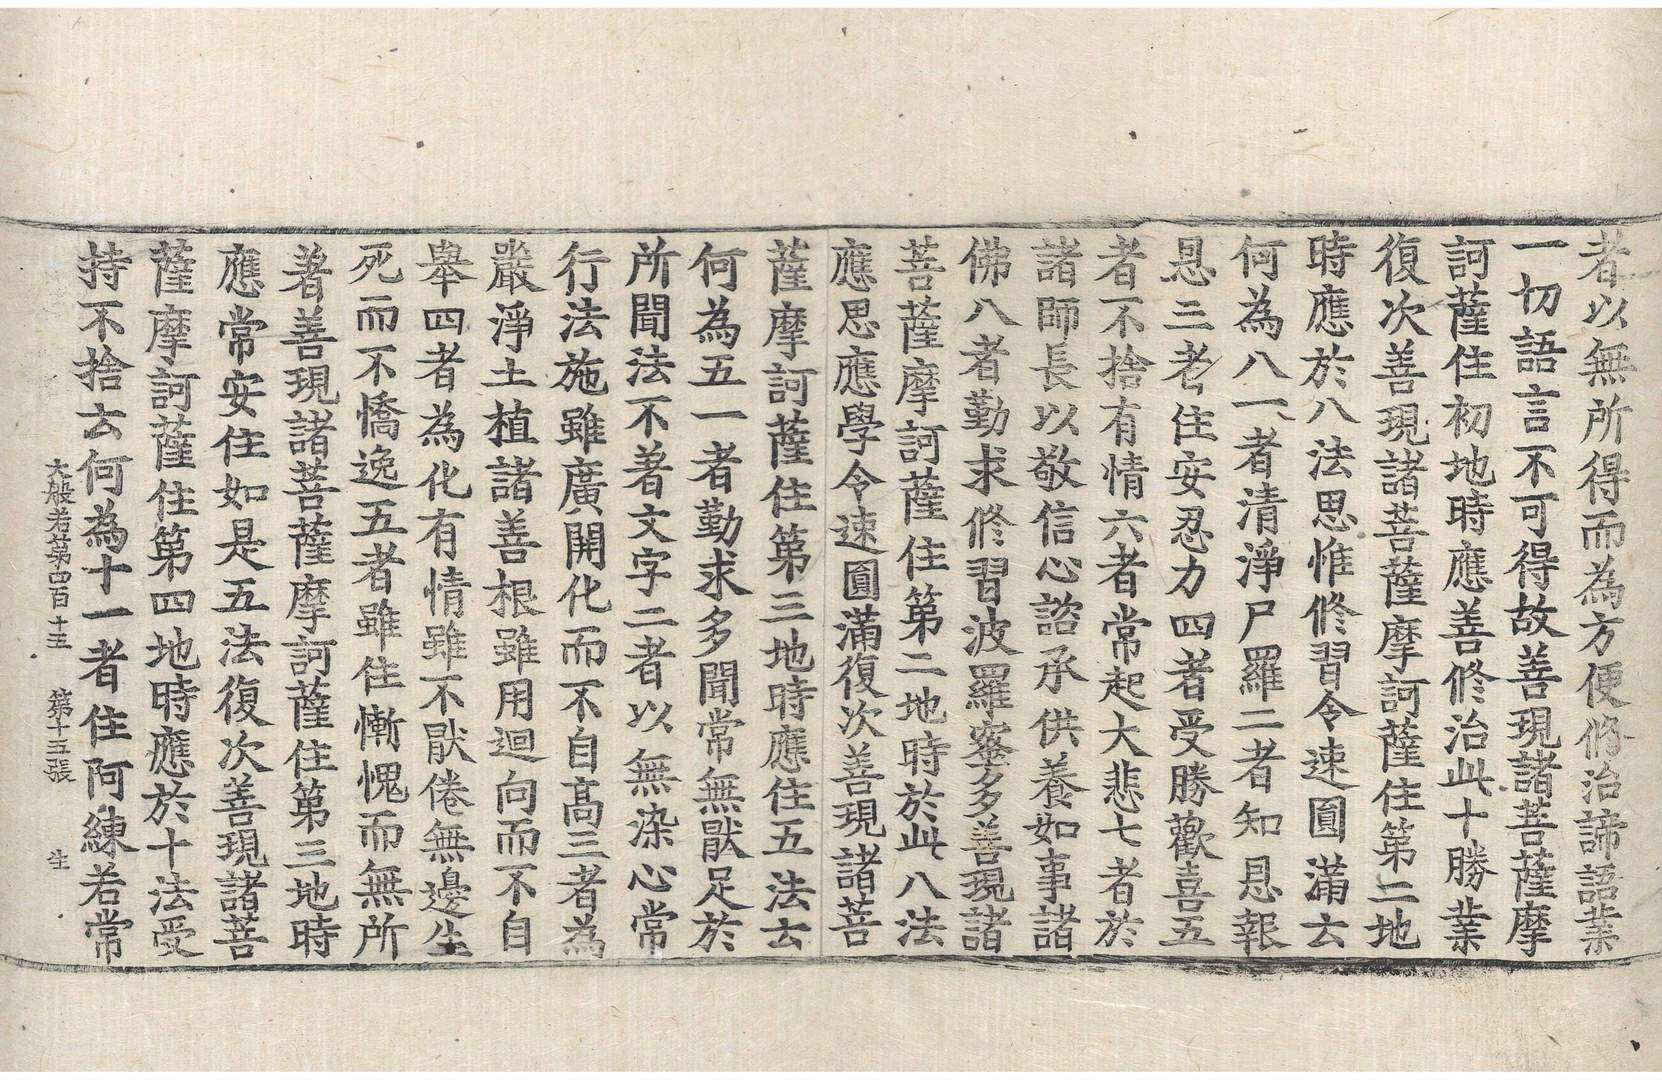 者以無所得而為方便修治諦語業
一切語言不可得故善現諸菩薩摩
訶薩住初地時應善修治此十勝業
復次善現諸菩薩摩訶薩住第二地
時應於八法思惟修習令速圓滿云
何為八一者清淨尸羅二者知恩報
恩三者住安忍力四者受勝歡喜五
者不捨有情六者常起大悲七者於
諸師長以敬信心諮承供養如事諸
佛八者勤求修習波羅蜜多善現諸
菩薩摩訶薩住第二地時於此八法
應思應學令速圓滿復次善現諸菩
薩摩訶薩住第三地時應住五法云
何為五一者勤求多聞常無猒足於
所聞法不著文字二者以無染心常
行法施雖廣開化而不自高三者為
嚴淨土植諸善根雖用迴向而不自
舉四者為化有情雖不猒倦無邊生
死而不憍逸五者雖住慚愧而無所
著善現諸菩薩摩訶薩住第三地時
應常安住如是五法復次善現諸菩
薩摩訶薩住第四地時應於十法受
持不捨云何為十一者住阿練若常
大般若第四百十五 第十五張 生